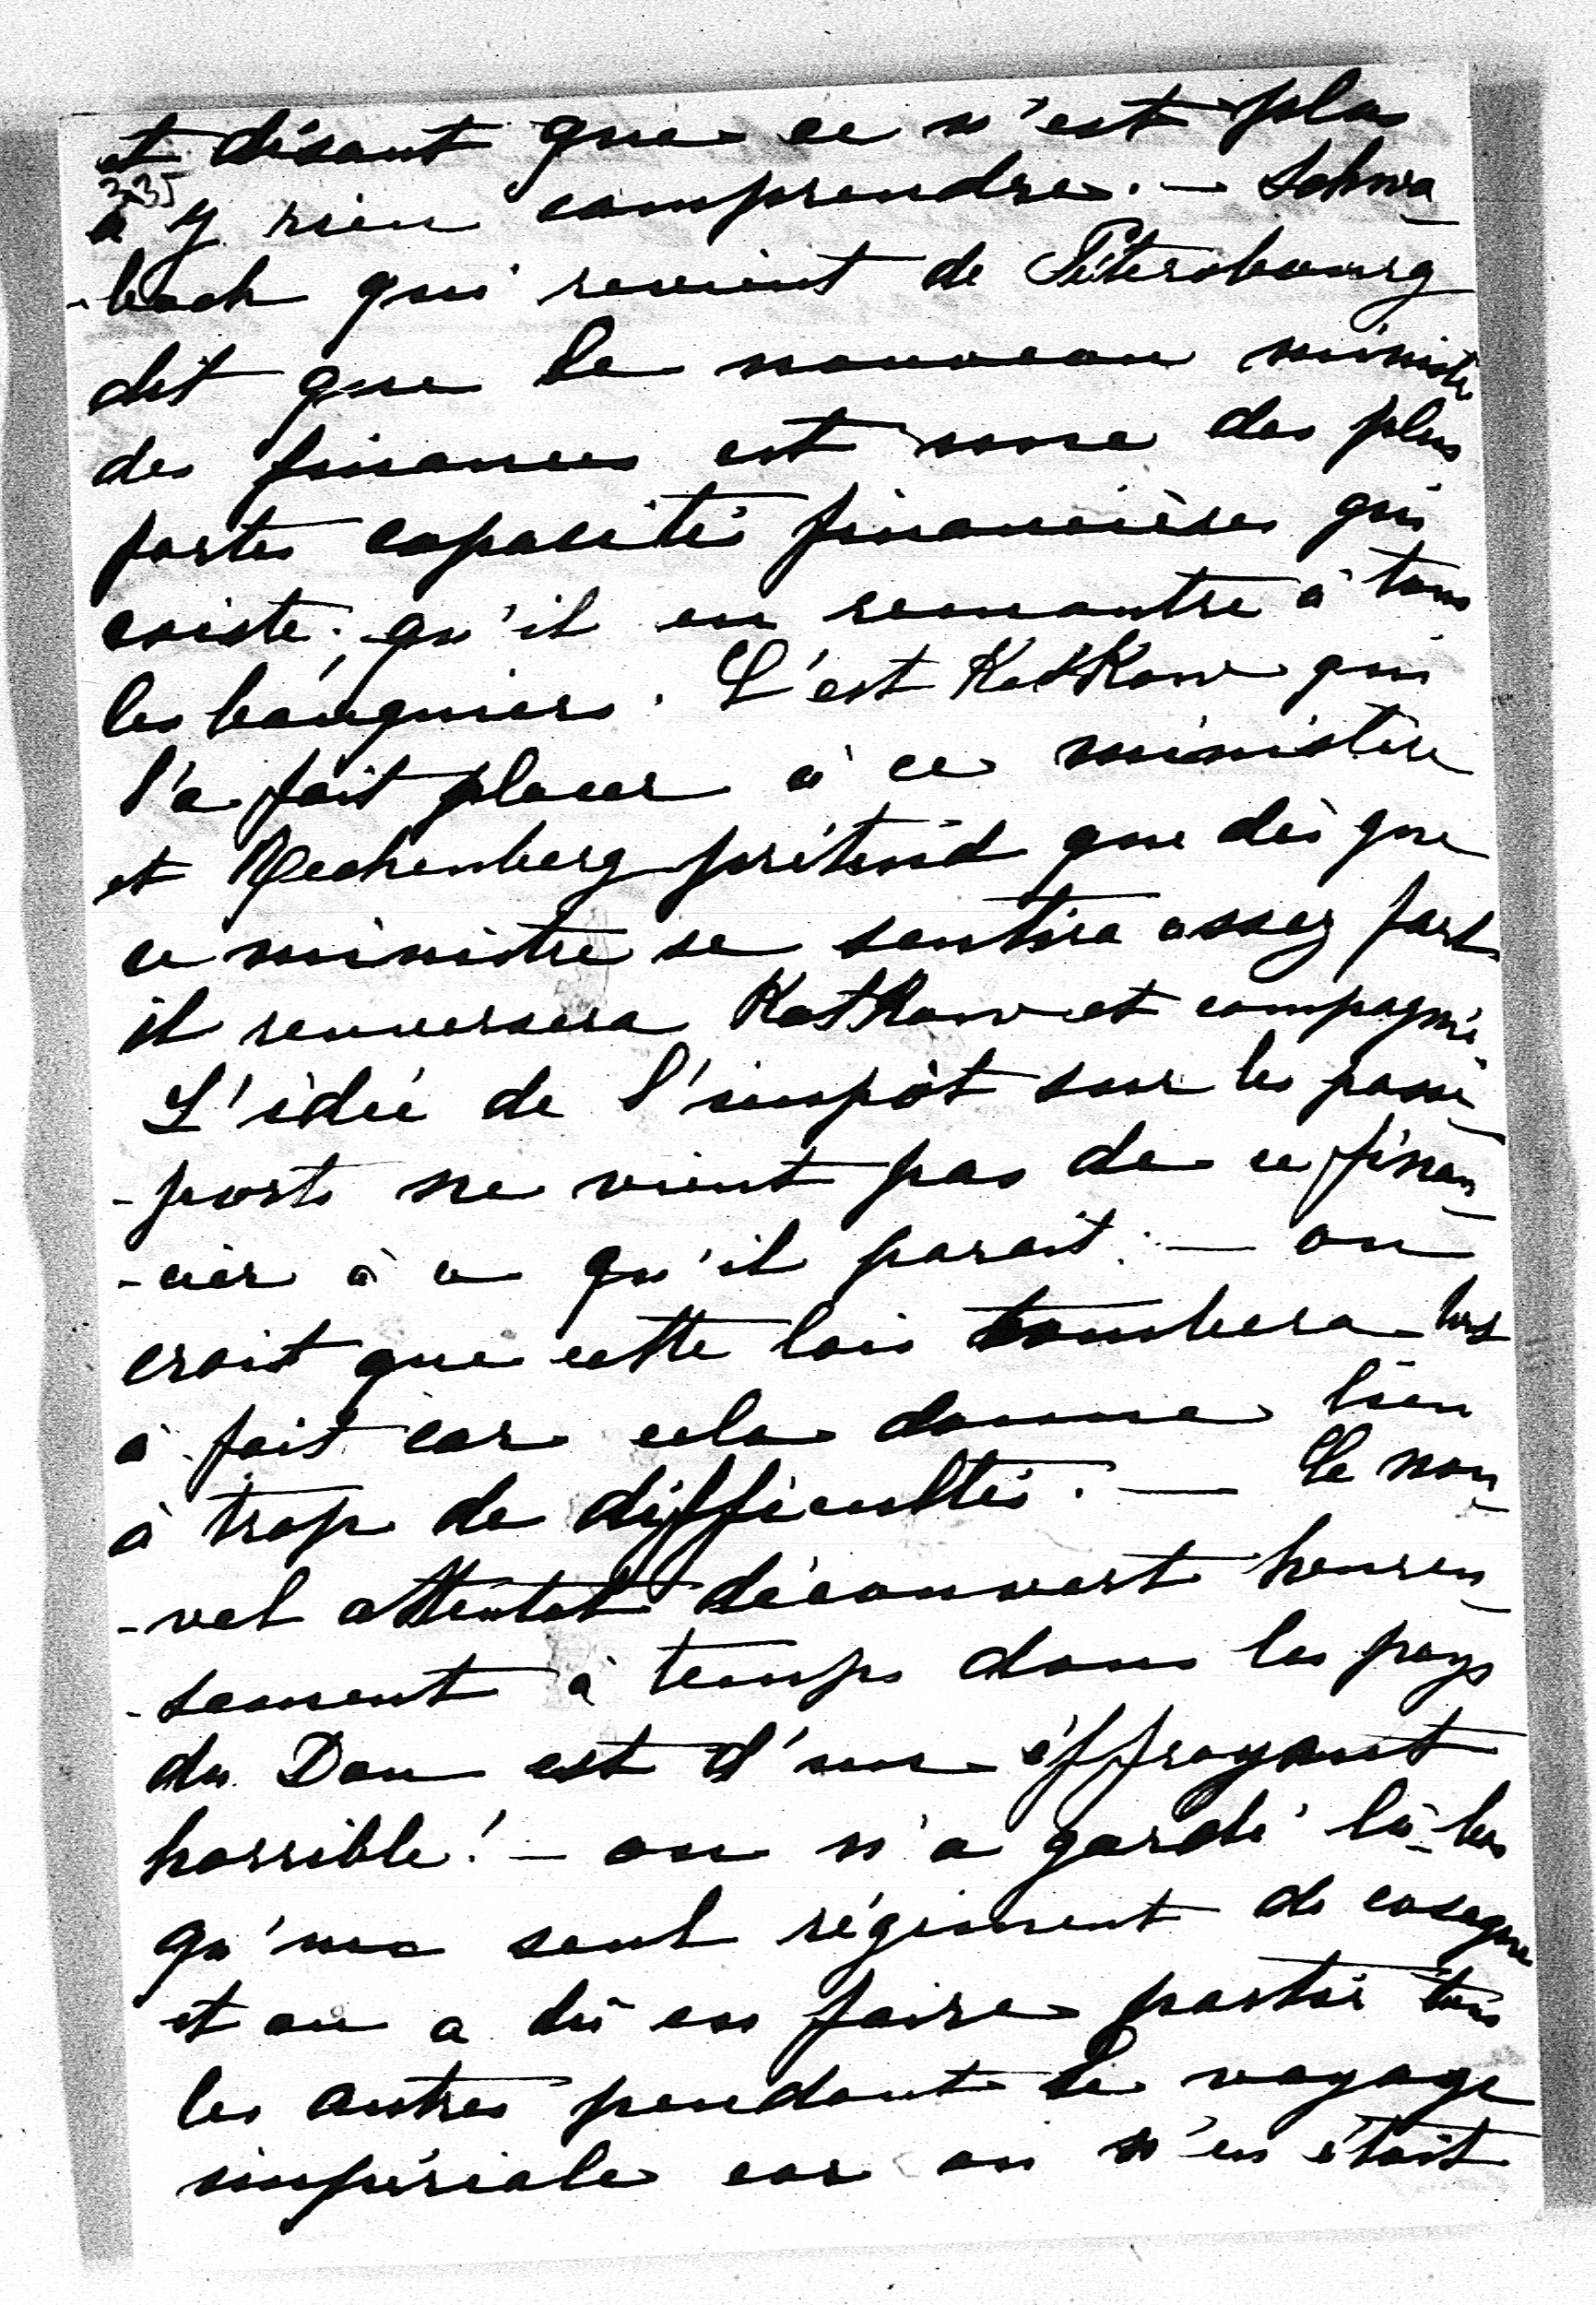 et disant que ce n'est plus
335
à y rien comprendre. — Schwa-
-bach qui revient de Pétersbourg
dit que le nouveau ministre
des finances est une des plus
fortes capacités financières qui
existe; qu'il en remontre à tous
les banquiers. C'est Katkow qui
l'a fait placer à ce ministère
et Rechenberg prétend que dès que
ce ministre se sentira assez fort
il renversera Katkow et compagnie
L'idée de l'impôt sur les passe-
-ports ne vient pas de ce finan-
-cier à ce qu'il parait; — on
croit que cette lois tombera tout
à fait car cela donne lieu
à trop de difficultés. — Le nou-
-vel attentat découvert heureu-
-sement à temps dans les pays
du Don est d'un éffrayant
horrible! — on n'a gardé là-bas
qu'un seul régiment de cosaques
et on a dû en faire partir tous
les autres pendant le voyage
impériale car on n'en était